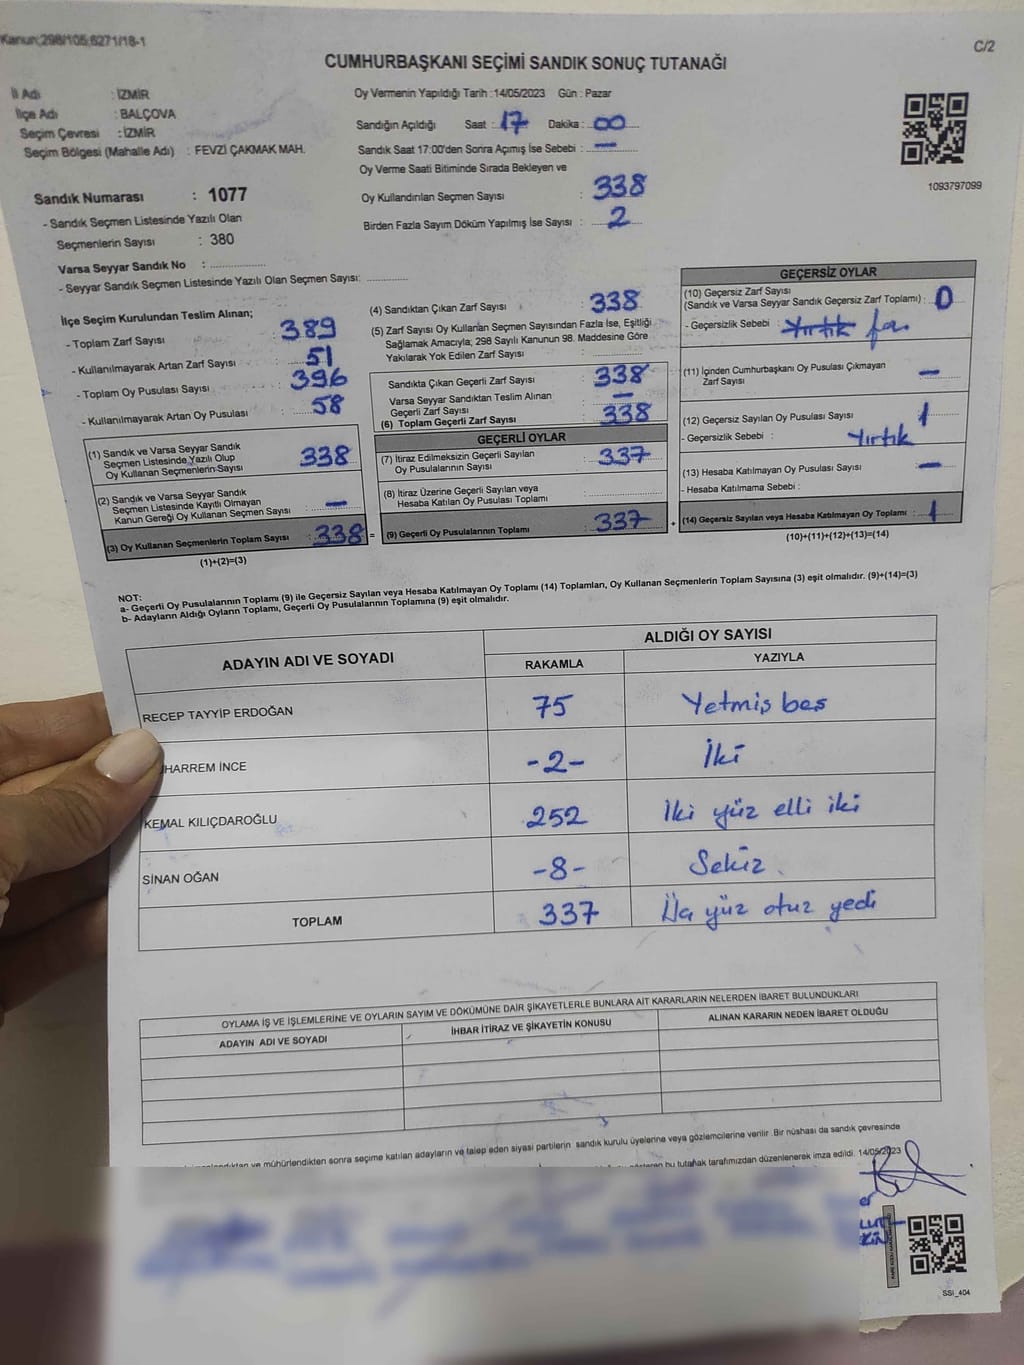 Kanun;298/105;6271/18-1
C/2
CUMHURBAŞKANI SEÇİMİ SANDIK SONUÇ TUTANAĞI
İl Adı : İZMİR
İlçe Adı : BALÇOVA
Seçim Çevresi : İZMİR
Seçim Bölgesi (Mahalle Adı) : FEVZİ ÇAKMAK MAH.
Oy Vermenin Yapıldığı Tarih :14/05/2023 Gün : Pazar
Sandığın Açıldığı Saat : 17 Dakika : 00
Sandık Saat 17:00'den Sonra Açımış İse Sebebi : —
Oy Verme Saati Bitiminde Sırada Bekleyen ve
Oy Kullandırılan Seçmen Sayısı : 338
Birden Fazla Sayım Döküm Yapılmış İse Sayısı : 2
1093797099
Sandık Numarası : 1077
- Sandık Seçmen Listesinde Yazılı Olan
Seçmenlerin Sayısı : 380
Varsa Seyyar Sandık No : ..............
- Seyyar Sandık Seçmen Listesinde Yazılı Olan Seçmen Sayısı: ..........
İlçe Seçim Kurulundan Teslim Alınan;
- Toplam Zarf Sayısı : 389
- Kullanılmayarak Artan Zarf Sayısı : 51
- Toplam Oy Pusulası Sayısı : 396
- Kullanılmayarak Artan Oy Pusulası : 58
(1) Sandık ve Varsa Seyyar Sandık
Seçmen Listesinde Yazılı Olup
Oy Kullanan Seçmenlerin Sayısı 338
(2) Sandık ve Varsa Seyyar Sandık
Seçmen Listesinde Kayıtlı Olmayan
Kanun Gereği Oy Kullanan Seçmen Sayısı : —
(3) Oy Kullanan Seçmenlerin Toplam Sayısı : 338 =
(1)+(2)=(3)
(4) Sandıktan Çıkan Zarf Sayısı : 338
(5) Zarf Sayısı Oy Kullanan Seçmen Sayısından Fazla İse, Eşitliği
Sağlamak Amacıyla; 298 Sayılı Kanunun 98. Maddesine Göre
Yakılarak Yok Edilen Zarf Sayısı : ..............
Sandıkta Çıkan Geçerli Zarf Sayısı : 338
Varsa Seyyar Sandıktan Teslim Alınan
Geçerli Zarf Sayısı : —
(6) Toplam Geçerli Zarf Sayısı : 338
GEÇERLİ OYLAR
(7) İtiraz Edilmeksizin Geçerli Sayılan
Oy Pusulalarının Sayısı : 337
(8) İtiraz Üzerine Geçerli Sayılan veya
Hesaba Katılan Oy Pusulası Toplamı : ..............
(9) Geçerli Oy Pusulalarının Toplamı : 337 +
GEÇERSİZ OYLAR
(10) Geçersiz Zarf Sayısı
(Sandık ve Varsa Seyyar Sandık Geçersiz Zarf Toplamı) : 0
- Geçersizlik Sebebi : Yırtık
(11) İçinden Cumhurbaşkanı Oy Pusulası Çıkmayan
Zarf Sayısı : —
(12) Geçersiz Sayılan Oy Pusulası Sayısı : 1
- Geçersizlik Sebebi : Yırtık
(13) Hesaba Katılmayan Oy Pusulası Sayısı : —
- Hesaba Katılmama Sebebi :
(14) Geçersiz Sayılan veya Hesaba Katılmayan Oy Toplamı : 1
(10)+(11)+(12)+(13)=(14)
NOT:
a- Geçerli Oy Pusulalarının Toplamı (9) ile Geçersiz Sayılan veya Hesaba Katılmayan Oy Toplamı (14) Toplamları, Oy Kullanan Seçmenlerin Toplam Sayısına (3) eşit olmalıdır. (9)+(14)=(3)
b- Adayların Aldığı Oyların Toplamı, Geçerli Oy Pusulalarının Toplamına (9) eşit olmalıdır.
ADAYIN ADI VE SOYADI
ALDIĞI OY SAYISI
RAKAMLA YAZIYLA
RECEP TAYYİP ERDOĞAN 75 Yetmiş beş
HARREM İNCE -2- İki
KEMAL KILIÇDAROĞLU 252 İki yüz elli iki
SİNAN OĞAN -8- Sekiz
TOPLAM 337 Üç yüz otuz yedi
OYLAMA İŞ VE İŞLEMLERİNE VE OYLARIN SAYIM VE DÖKÜMÜNE DAİR ŞİKAYETLERLE BUNLARA AİT KARARLARIN NELERDEN İBARET BULUNDUKLARI
ADAYIN ADI VE SOYADI İHBAR İTİRAZ VE ŞİKAYETİN KONUSU ALINAN KARARIN NEDEN İBARET OLDUĞU
ve mühürlendikten sonra seçime katılan adayların ve talep eden siyasi partilerin sandık kurulu üyelerine veya gözlemcilerine verilir .Bir nüshası da sandık çevresinde
bu tutanak tarafımızdan düzenlenerek imza edildi. 14/05/2023
SSI_404